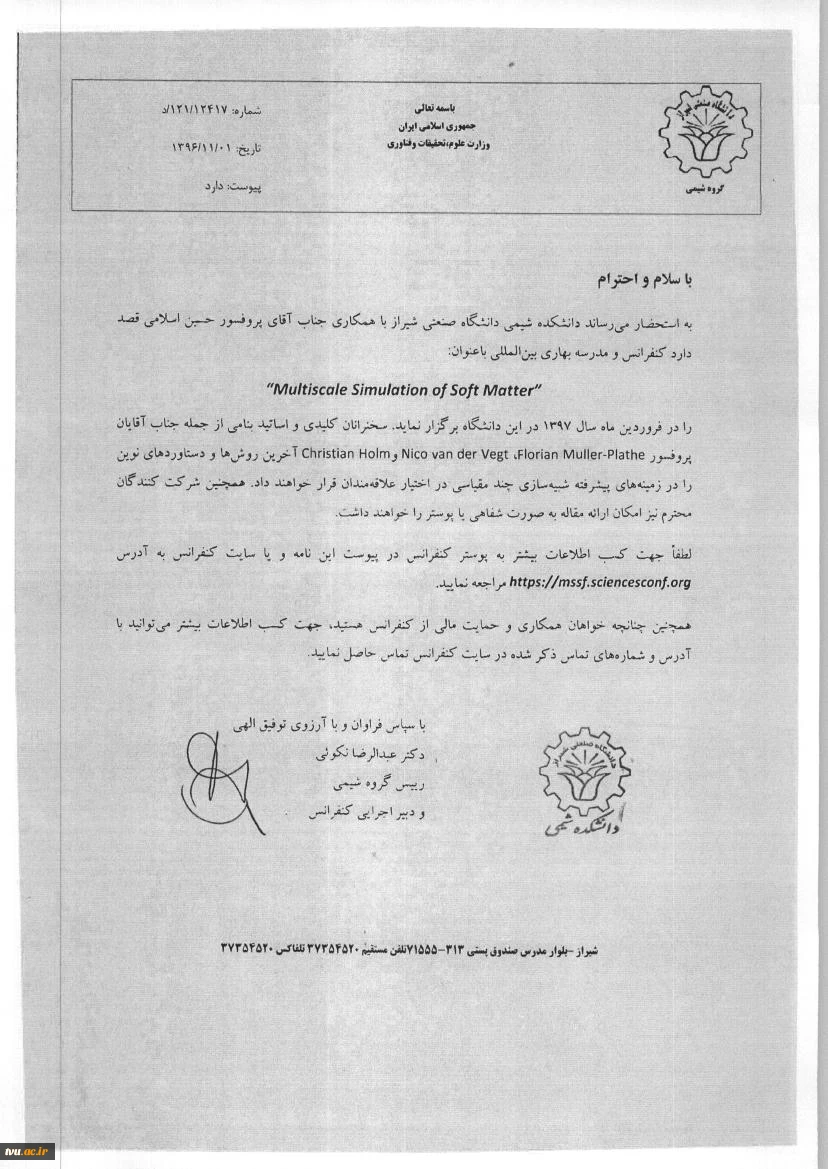 باسمه تعالی
جمهوری اسلامی ایران
وزارت علوم،تحقیقات وفناوری
دانشگاه صنعتی شیراز
گروه شیمی
شماره: ۱۲۱/۱۲۴۱۷/د
تاریخ: ۱۳۹۶/۱۱/۰۱
پیوست: دارد
با سلام و احترام
به استحضار می‌رساند دانشکده شیمی دانشگاه صنعتی شیراز با همکاری جناب آقای پروفسور حسین اسلامی قصد
دارد کنفرانس و مدرسه بهاری بین‌المللی باعنوان:
“Multiscale Simulation of Soft Matter”
را در فروردین ماه سال ۱۳۹۷ در این دانشگاه برگزار نماید. سخنرانان کلیدی و اساتید بنامی از جمله جناب آقایان
پروفسور Florian Muller-Plathe، Nico van der Vegt و Christian Holm آخرین روش‌ها و دستاوردهای نوین
را در زمینه‌های پیشرفته شبیه‌سازی چند مقیاسی در اختیار علاقه‌مندان قرار خواهند داد. همچنین شرکت کنندگان
محترم نیز امکان ارائه مقاله به صورت شفاهی یا پوستر را خواهند داشت.
لطفاً جهت کسب اطلاعات بیشتر به پوستر کنفرانس در پیوست این نامه و یا سایت کنفرانس به آدرس
https://mssf.sciencesconf.org مراجعه نمایید.
همچنین چنانچه خواهان همکاری و حمایت مالی از کنفرانس هستید، جهت کسب اطلاعات بیشتر می‌توانید با
آدرس و شماره‌های تماس ذکر شده در سایت کنفرانس تماس حاصل نمایید.
با سپاس فراوان و با آرزوی توفیق الهی
دکتر عبدالرضا نکوئی
رییس گروه شیمی
و دبیر اجرایی کنفرانس
دانشگاه صنعتی شیراز
دانشکده شیمی
شیراز -بلوار مدرس صندوق پستی ۳۱۳-۷۱۵۵۵تلفن مستقیم ۳۷۳۵۴۵۲۰ تلفاکس ۳۷۳۵۴۵۲۰
tvu.ac.ir